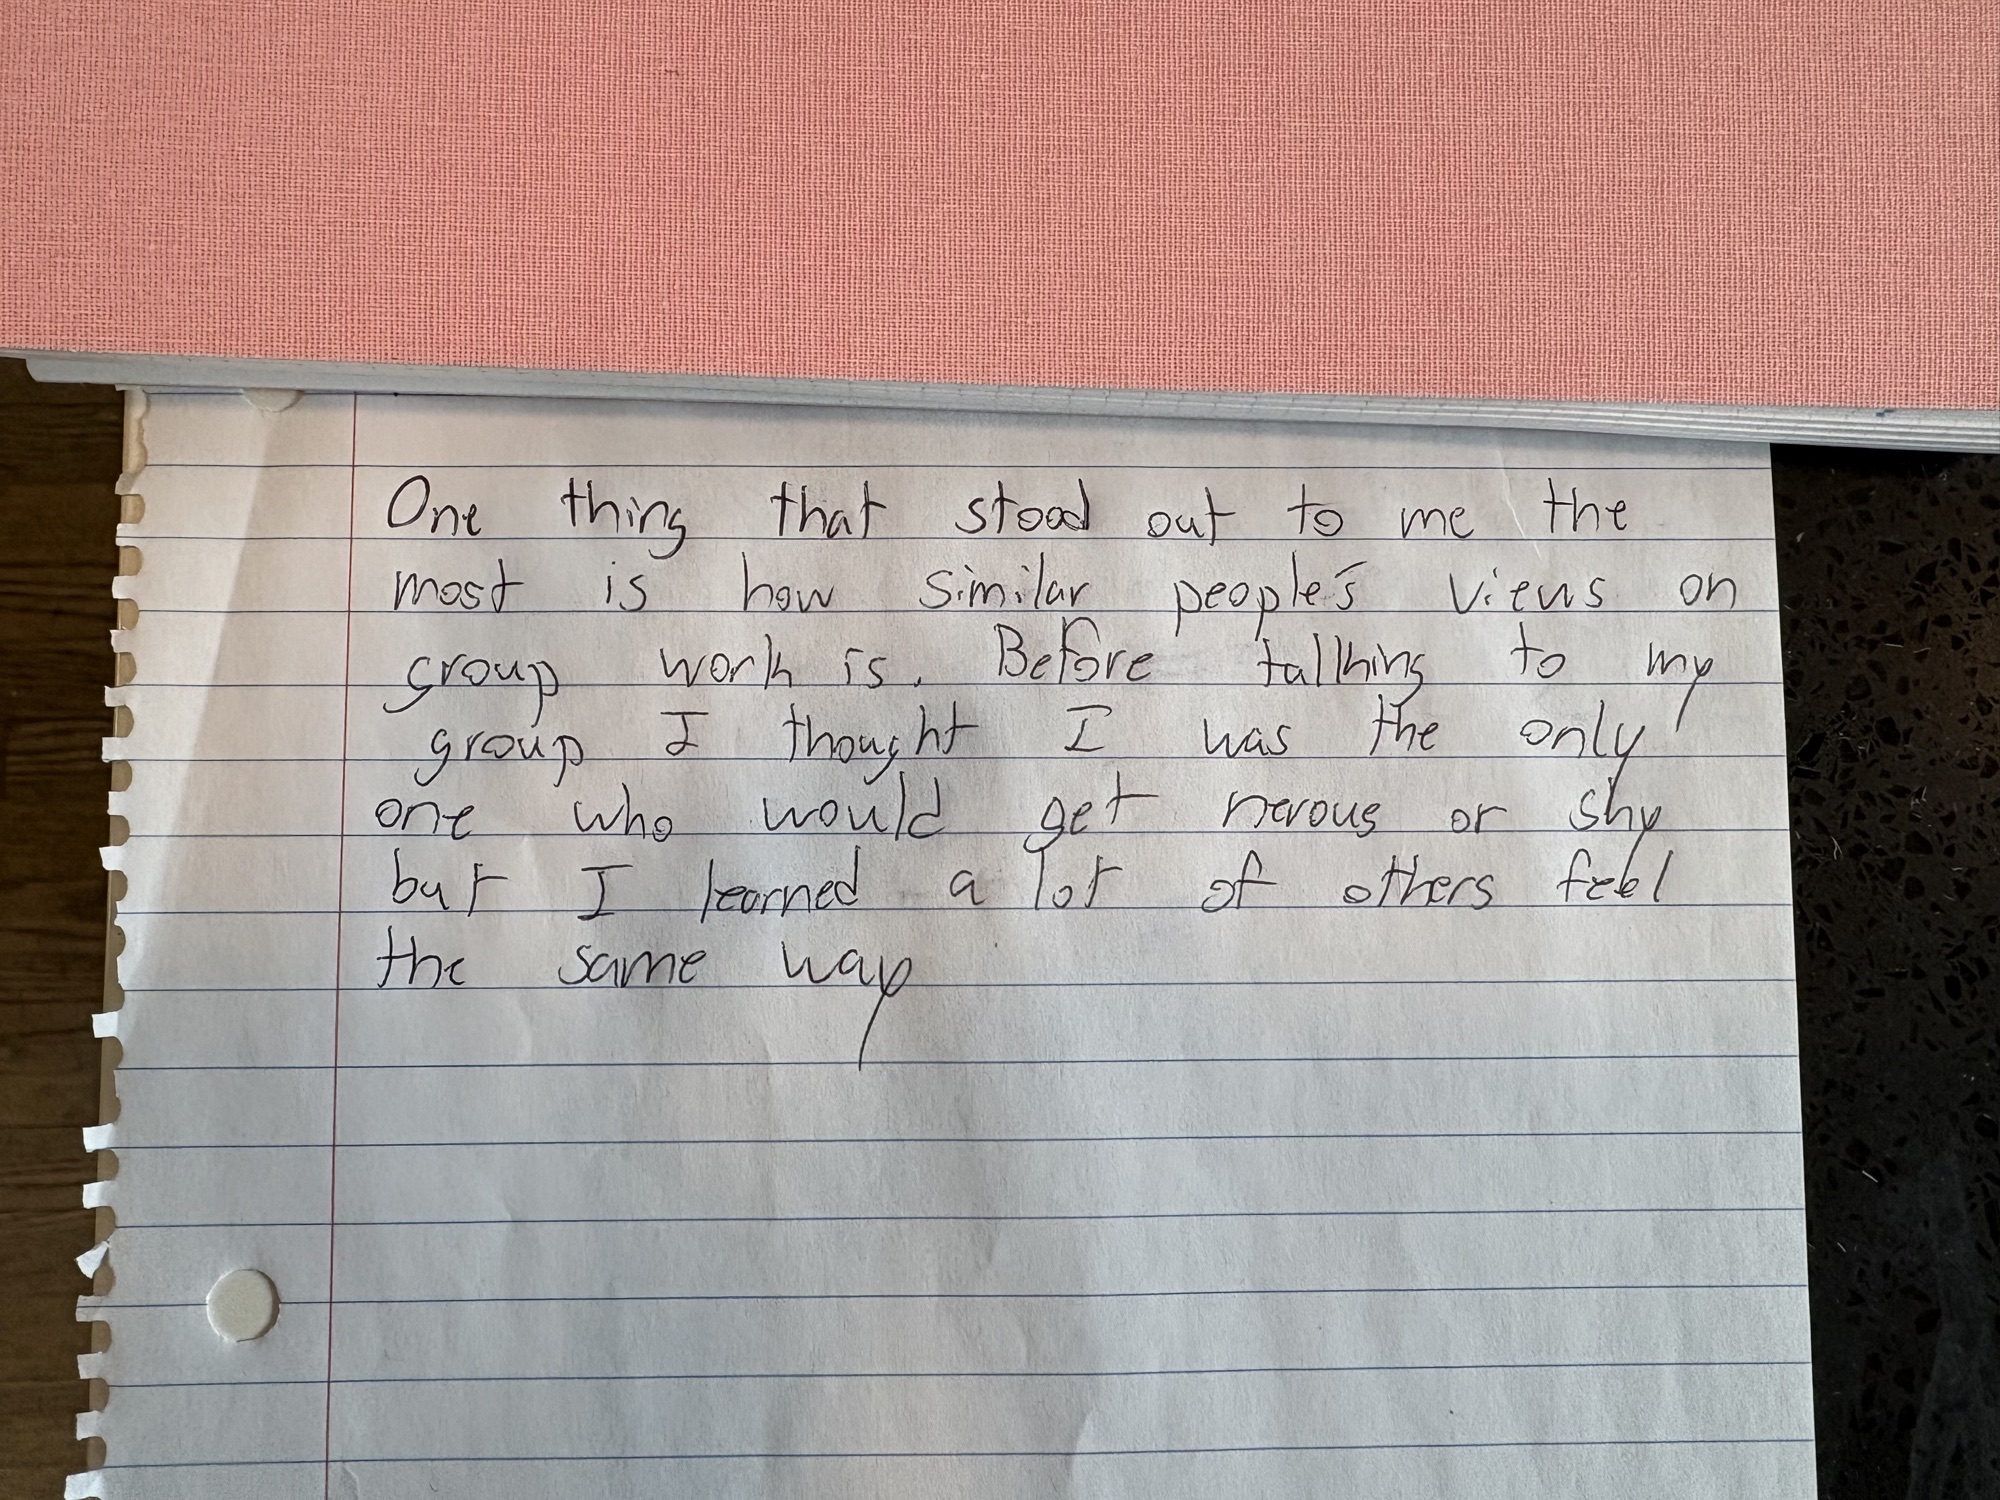 One thing that stood out to me the
most is how similar people's views on
group work is. Before tallking to my
group I thought I was the only
one who would get nervous or shy
but I learned a lot of others feel
the same way